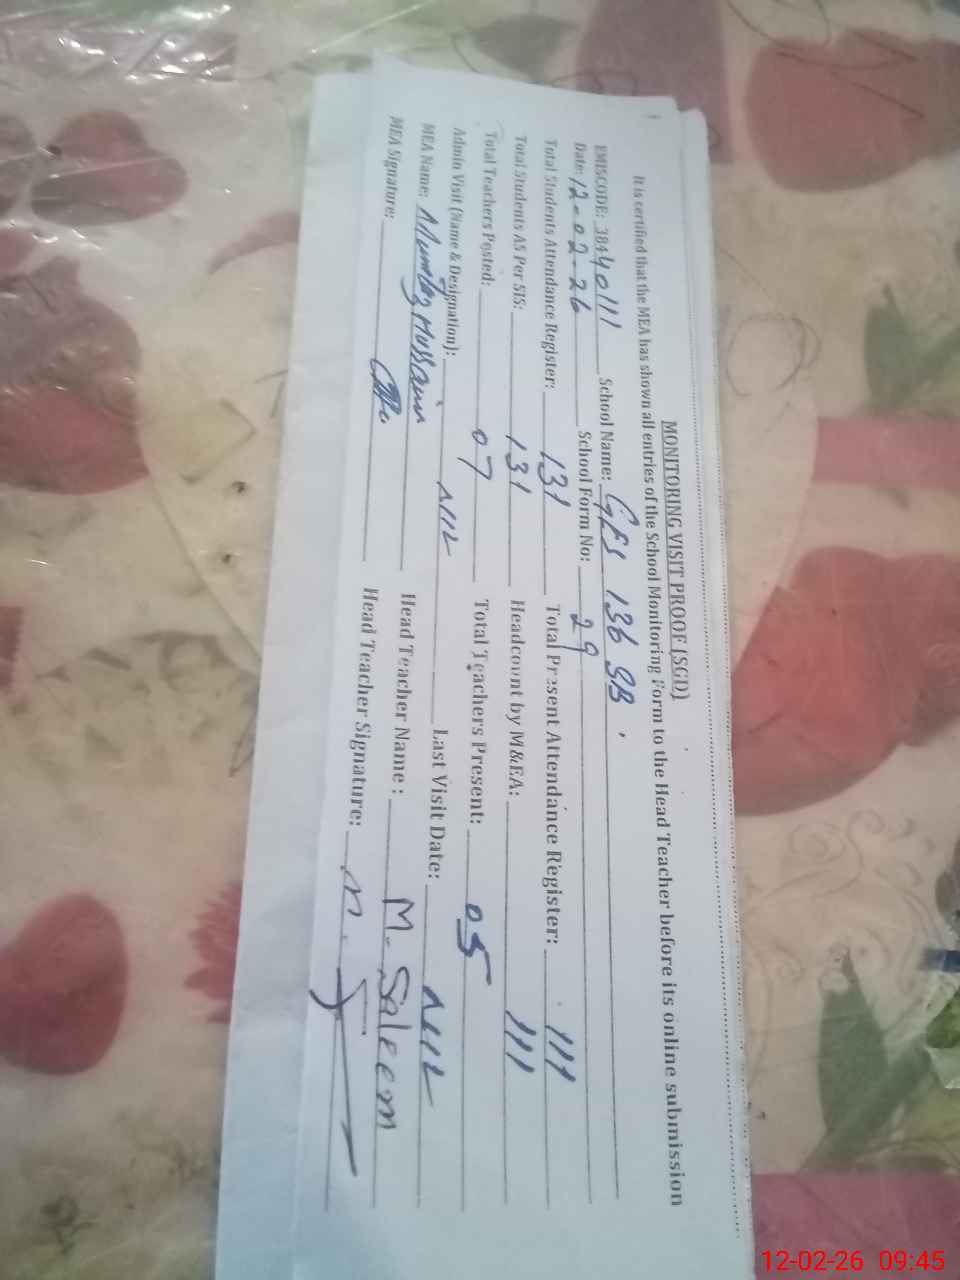 MONITORING VISIT PROOF (SGD)
It is certified that the MEA has shown all entries of the School Monitoring Form to the Head Teacher before its online submission
EMISCODE: 38440111 School Name: GES 136 SB
Date: 12-02-26 School Form No: 29
Total Students Attendance Register: 131 Total Present Attendance Register: 111
Total Students AS Per SIS: 131 Headcount by M&EA: 111
Total Teachers Posted: 07 Total Teachers Present: 05
Admin Visit (Name & Designation): Nil Last Visit Date: Nil
MEA Name: Mumtaz Hussain Head Teacher Name : M. Saleem
MEA Signature: Head Teacher Signature:
12-02-26 09:45